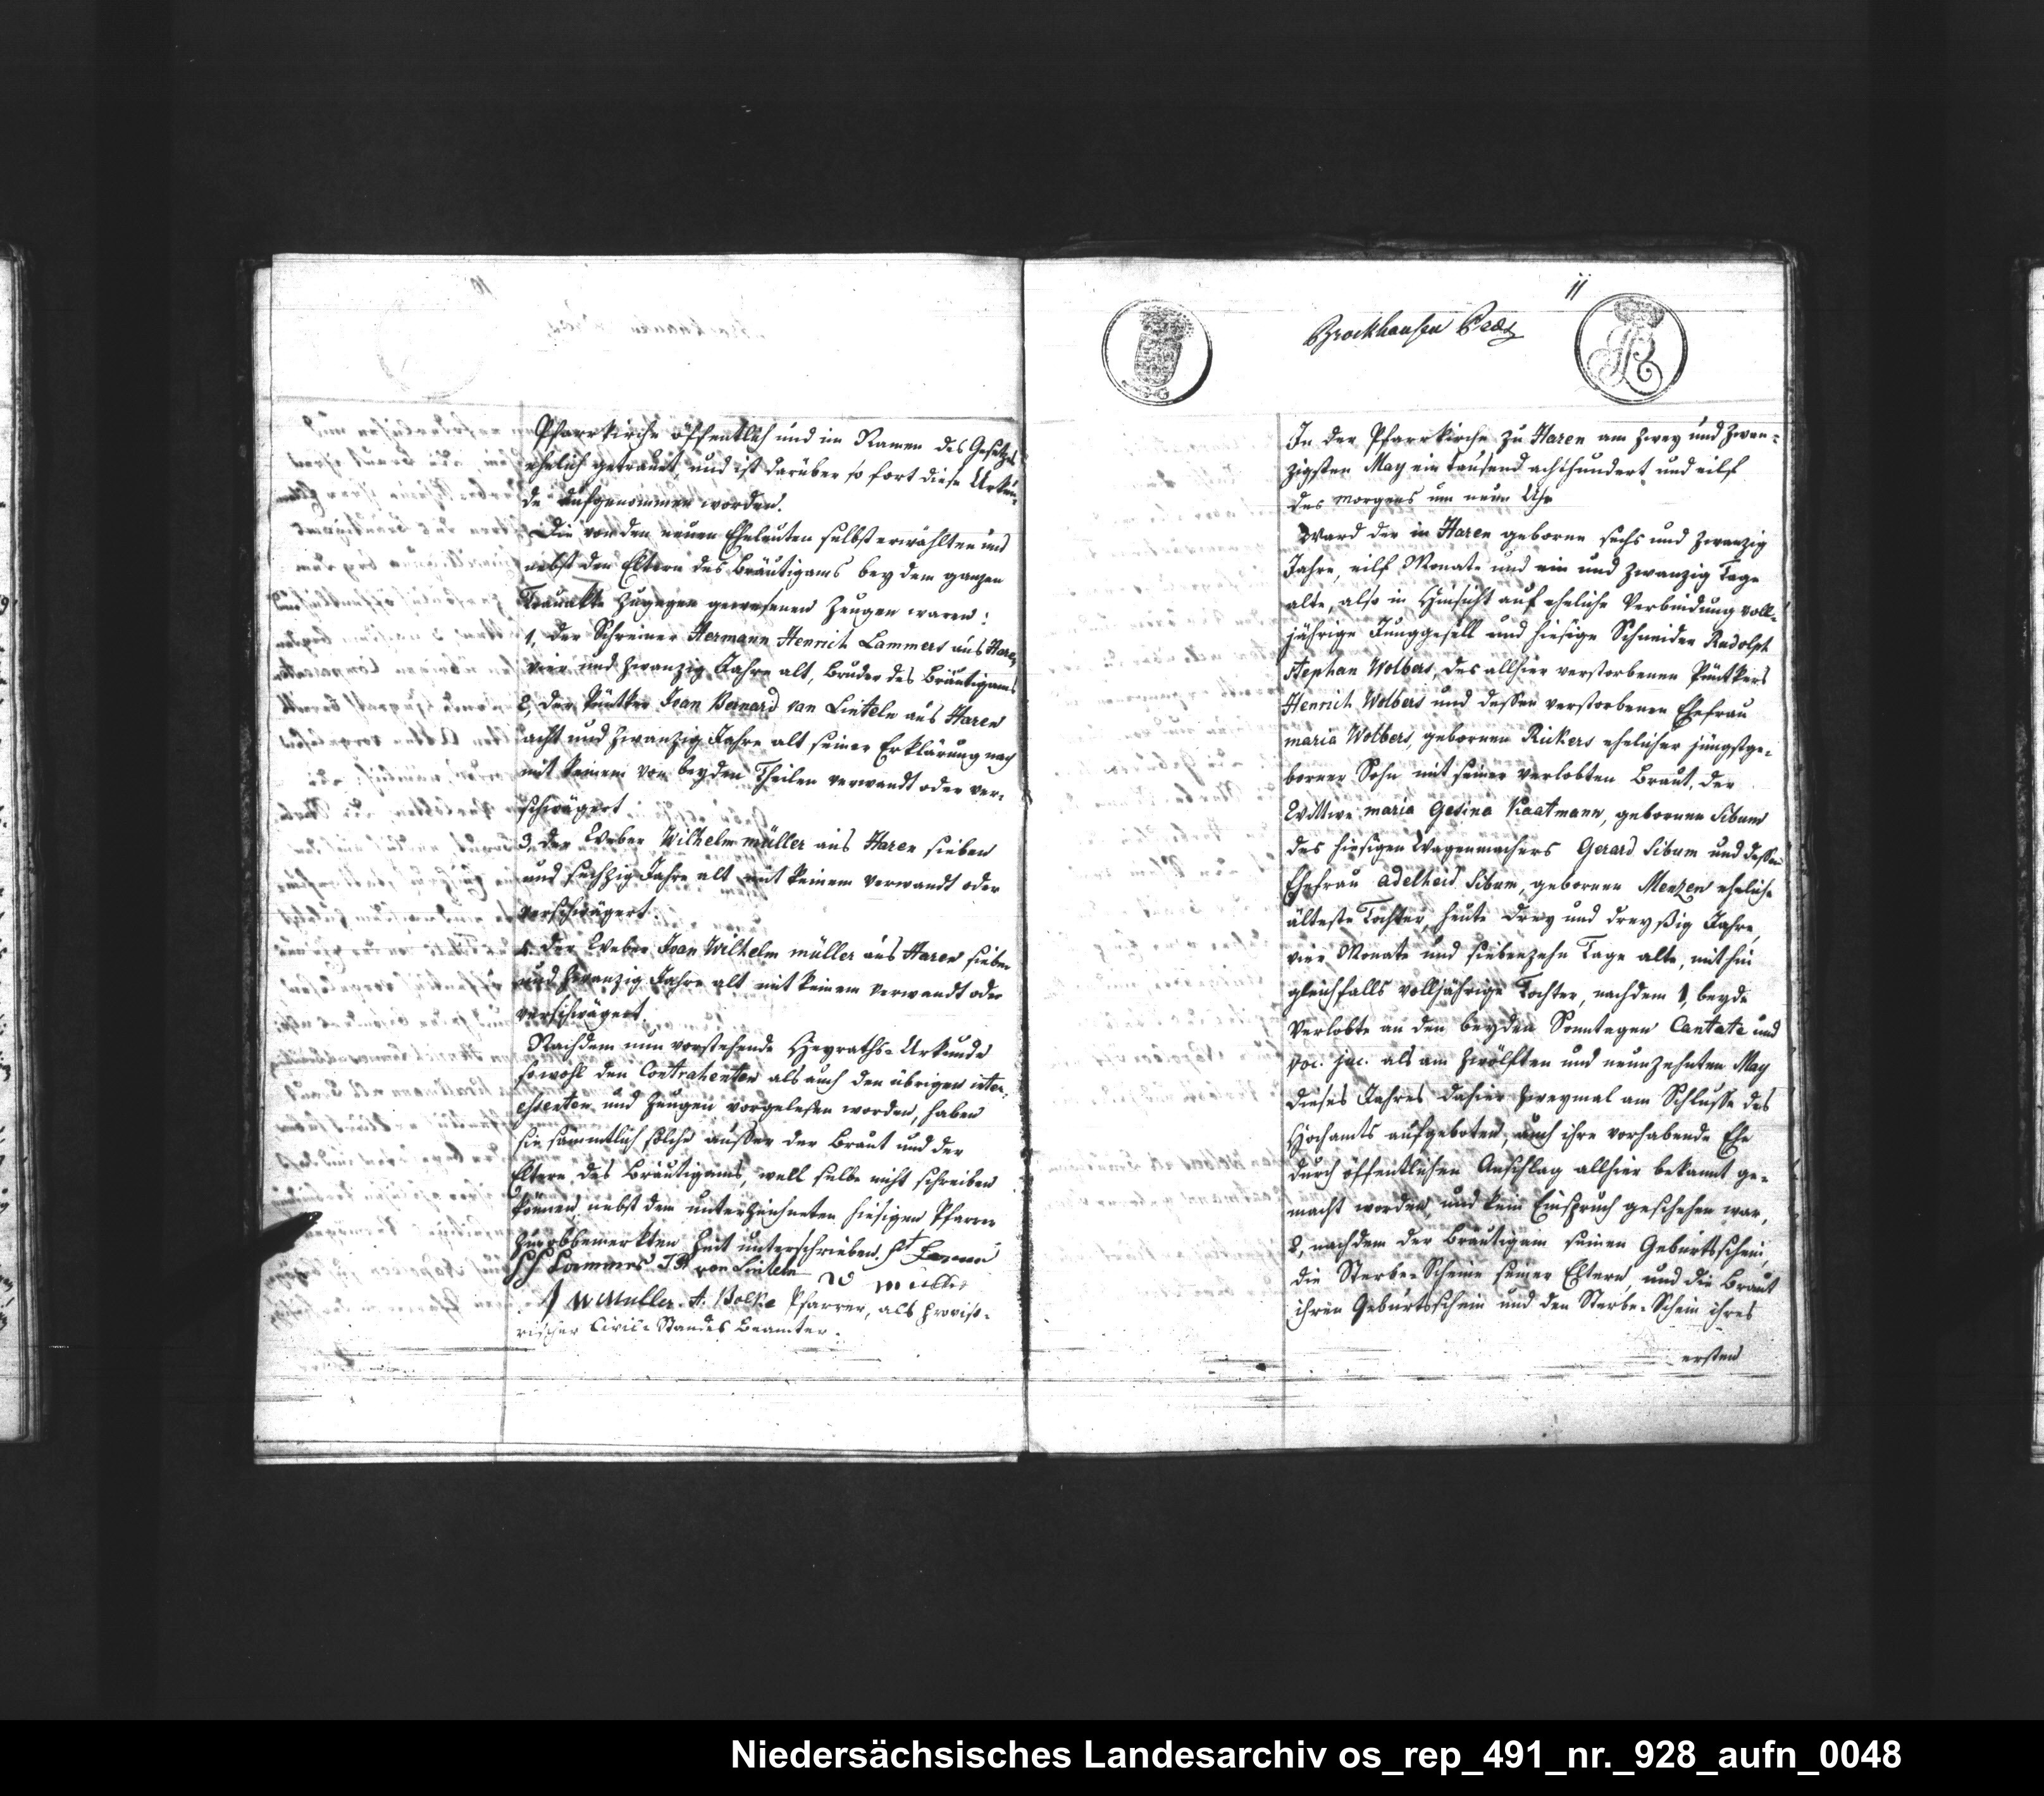 Pfarrkirche öffentlich und im Namen des Gesetzes
ehelich getrauet, und ist darüber so fort diese Urkun-
de aufgenommen worden.
Die von den neuen Eheleuten selbst erwählten und
nebst den Eltern des Bräutigams bey dem ganzen
Trauakte zugegen gewesenen Zeugen waren:
1, der Schreiner Hermann Henrich Lammers aus Haren
vier und zwanzig Jahre alt, Bruder des Bräutigams
2, der Püntker Joan Bernard van Linteln aus Haren
acht und zwanzig Jahre alt seiner Erklärung nach
mit keinem von beyden Theilen verwandt oder ver-
schwägert
3, der Weber Wilhelm müller aus Haren sieben
und sechzig Jahre alt mit keinem verwandt oder
verschwägert.
4. der Weber Joan Wilhelm müller aus Haren sieben
und zwanzig Jahre alt mit keinem verwandt oder
verschwägert.
Nachdem nun vorstehende Heyraths-Urkunde
sowohl den Contrahenten als auch den übrigen inter-
essenten und Zeugen vorgelesen worden, haben
sie sämmtlich solche ausser der Braut und der
Eltern des Bräutigams, weil selbe nicht schreiben
können nebst dem unterzeichneten hiesigen Pfarrer
zur obbemerkten Zeit unterschrieben.
HH Lammers J B van Linteln W müller
J W Muller. A. Bolke Pfarrer, als proviso-
rischer Civil-Standes Beamter.
11
Brockhausen
In der Pfarrkirche zu Haren am zwey und zwan-
zigsten May ein tausend achthundert und eilf
des morgens um neun Uhr
Ward der in Haren geborne sechs und zwanzig
Jahre, eilf Monate und ein und zwanzig Tage
alte, also in Hinsicht auf eheliche Verbindung voll-
jährige Junggesell und hiesige Schneider Rudolph
Stephan Wolbers, des allhier verstorbenen Püntkers
Henrich Wolbers und dessen verstorbenen Ehefrau
maria Wolbers, gebornen Rickers ehelicher jüngstge-
borner Sohn mit seiner verlobten Braut, der
Wittwe maria Gesina Kaatmann, gebornen Sibum
des hiesigen Wagenmachers Gerard Sibum und dessen
Ehefrau adelheid Sibum, gebornen Menzen eheliche
älteste Tochter, heute drey und dreyßig Jahre,
vier Monate und siebenzehn Tage alte, mithin
gleichfalls volljährige Tochter, nachdem 1, beyde
Verlobte an den beyden Sonntagen Cantate und
voc. juc. als am zwölften und neunzehnten May
dieses Jahres dahier zweymal am Schlusse des
Hochamts aufgeboten, auch ihre vorhabende Ehe
durch öffentlichen Anschlag allhier bekannt ge-
macht worden, und kein Einspruch geschehen war,
2, nachdem der Bräutigam seinen Geburtsschein,
die Sterbe-Scheine seiner Eltern, und die Braut
ihren Geburtsschein und den Sterbe-Schein ihres
ersten
Niedersächsisches Landesarchiv os_rep_491_nr._928_aufn_0048